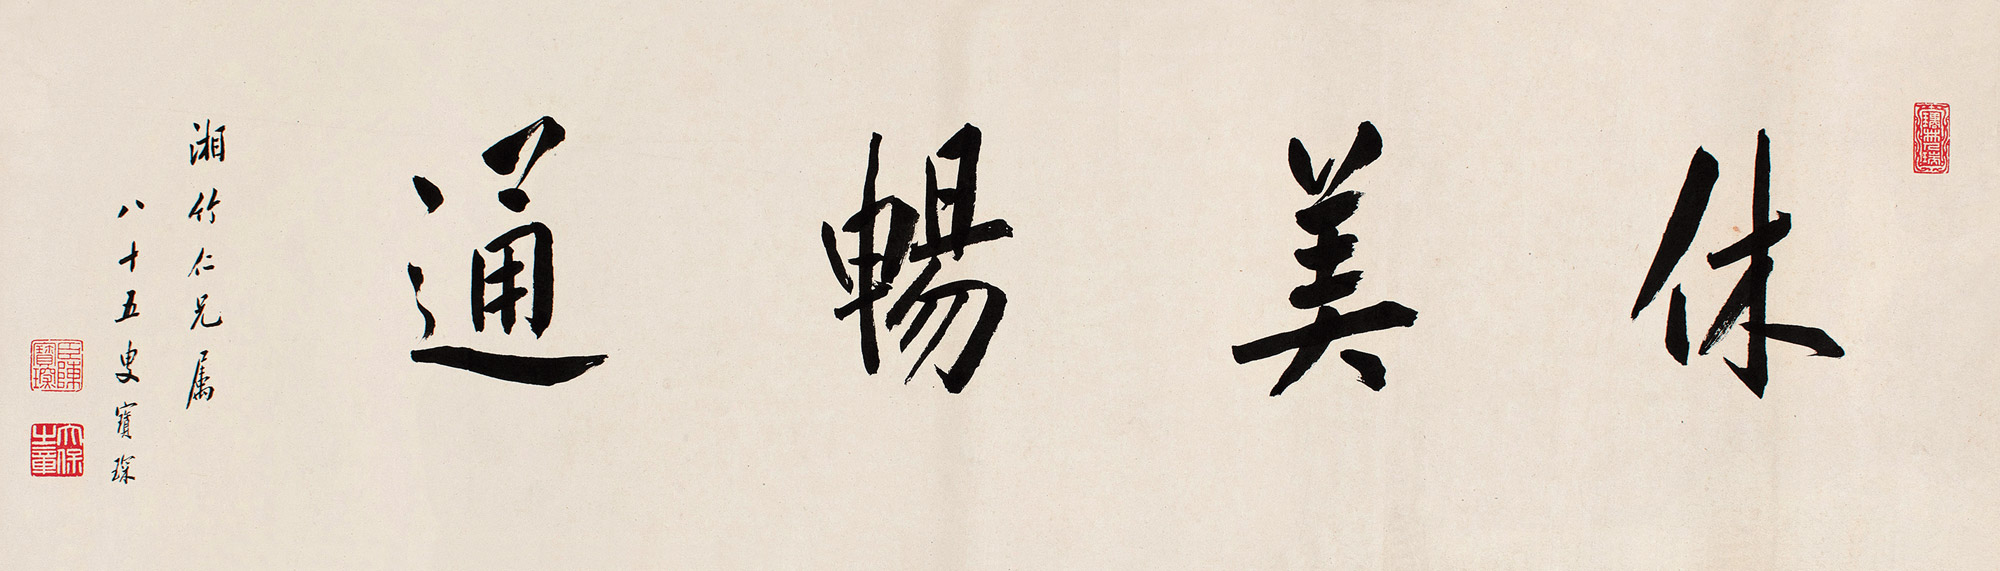 休美暢通
湘竹仁兄属
八十五叟寶琛
臣陳寶琛
太保之章